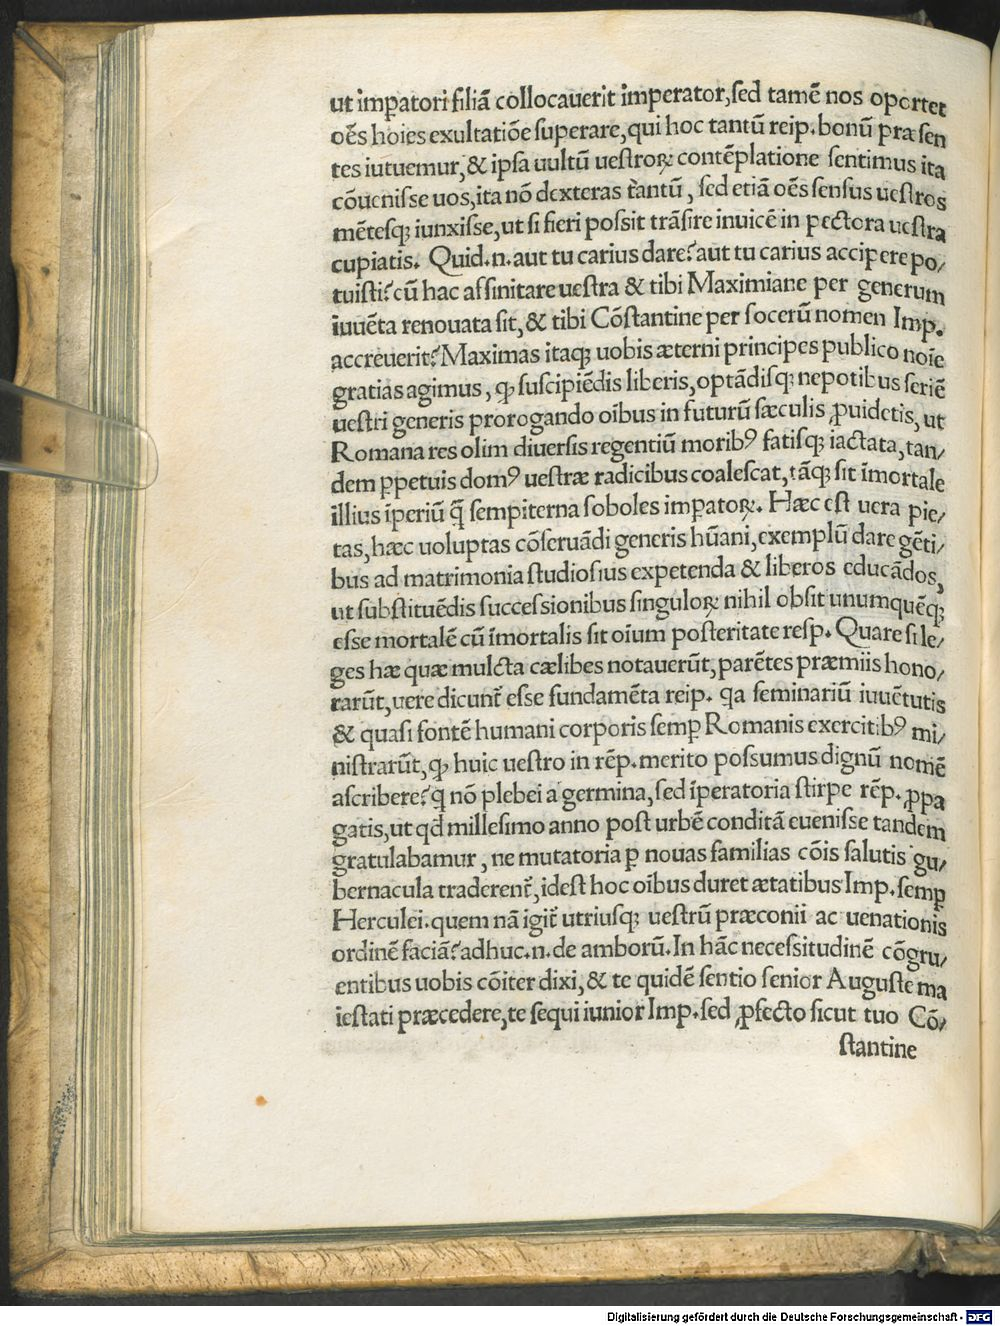 ut imꝑatori filiã collocauerit imperator, sed tamẽ nos oportet
oẽs hoĩes exultatiõe superare, qui hoc tantũ reip. bonũ præsen
tes iutuemur, & ipsa uultũ uestroꝝ contẽplatione sentimus ita
cõuenisse uos, ita nõ dexteras tantũ, sed etiã oẽs sensus uestros
mẽtesqꝫ iunxisse, ut si fieri possit trãsire inuicẽ in pectora uestra
cupiatis. Quid .n. aut tu carius dare? aut tu carius accipere po/
tuisti? cũ hac affinitare uestra & tibi Maximiane per generum
iuuẽta renouata sit, & tibi Cõstantine per socerũ nomen Imp.
accreuerit? Maximas itaqꝫ uobis æterni principes publico noĩe
gratias agimus, ꝙ suscipiẽdis liberis, optãdisqꝫ nepotibus seriẽ
uestri generis prorogando oĩbus in futurũ sæculis ꝓuidetis, ut
Romana res olim diuersis regentiũ moribꝰ fatisqꝫ iactata, tan/
dem ꝑpetuis domꝰ uestræ radicibus coalescat, tãqꝫ sit ĩmortale
illius ĩperiũ q̃ sempiterna soboles imꝑatoꝝ. Hæc est uera pie/
tas, hæc uoluptas cõseruãdi generis hũani, exemplũ dare gẽti/
bus ad matrimonia studiosius expetenda & liberos educãdos,
ut substituẽdis successionibus singuloꝝ nihil obsit unumquẽqꝫ
esse mortalẽ cũ ĩmortalis sit oĩum posteritate resp. Quare si le/
ges hæ quæ mulcta cælibes notauerũt, parẽtes præmiis hono/
rarũt, uere dicunt̃ esse fundamẽta reip. qa seminariũ iuuẽtutis
& quasi fontẽ humani corporis semꝑ Romanis exercitibꝰ mi/
nistrarũt, ꝙ huic uestro in rẽp. merito possumus dignũ nomẽ
ascribere? q̃ nõ plebeia germina, sed ĩperatoria stirpe rẽp. ꝓpa
gatis, ut qd̃ millesimo anno post urbẽ conditã euenisse tandem
gratulabamur, ne mutatoria ꝑ nouas familias cõis salutis gu/
bernacula traderent̃, idest hoc oĩbus duret ætatibus Imp. semꝑ
Herculei. quem nã igit̃ utriusqꝫ uestrũ præconii ac uenationis
ordinẽ faciã? adhuc .n. de amborũ. In hãc necessitudinẽ cõgru/
entibus uobis cõiter dixi, & te quidẽ sentio senior Auguste ma
iestati præcedere, te sequi iunior Imp. sed ꝓfecto sicut tuo Cõ/
stantine
Digitalisierung gefördert durch die Deutsche Forschungsgemeinschaft - DFG